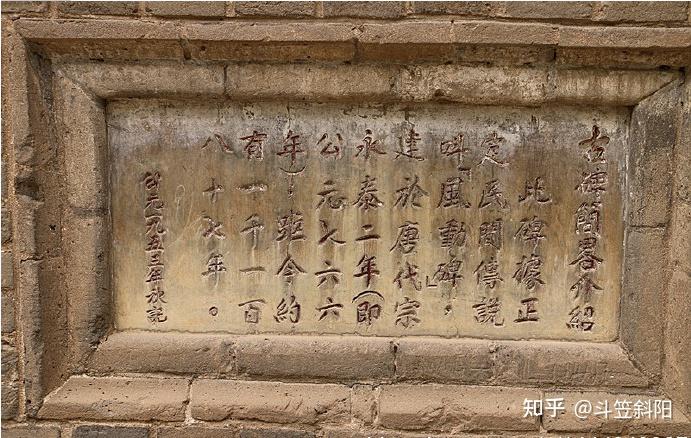 古碑簡畧介紹
此碑據正
定民間傳説
叫「風動碑」，
建於唐代宗
永泰二年(即
公元七六六
年)距今約
有一千一百
八十七年。
公元一九五三年秋記
知乎 @斗笠斜阳